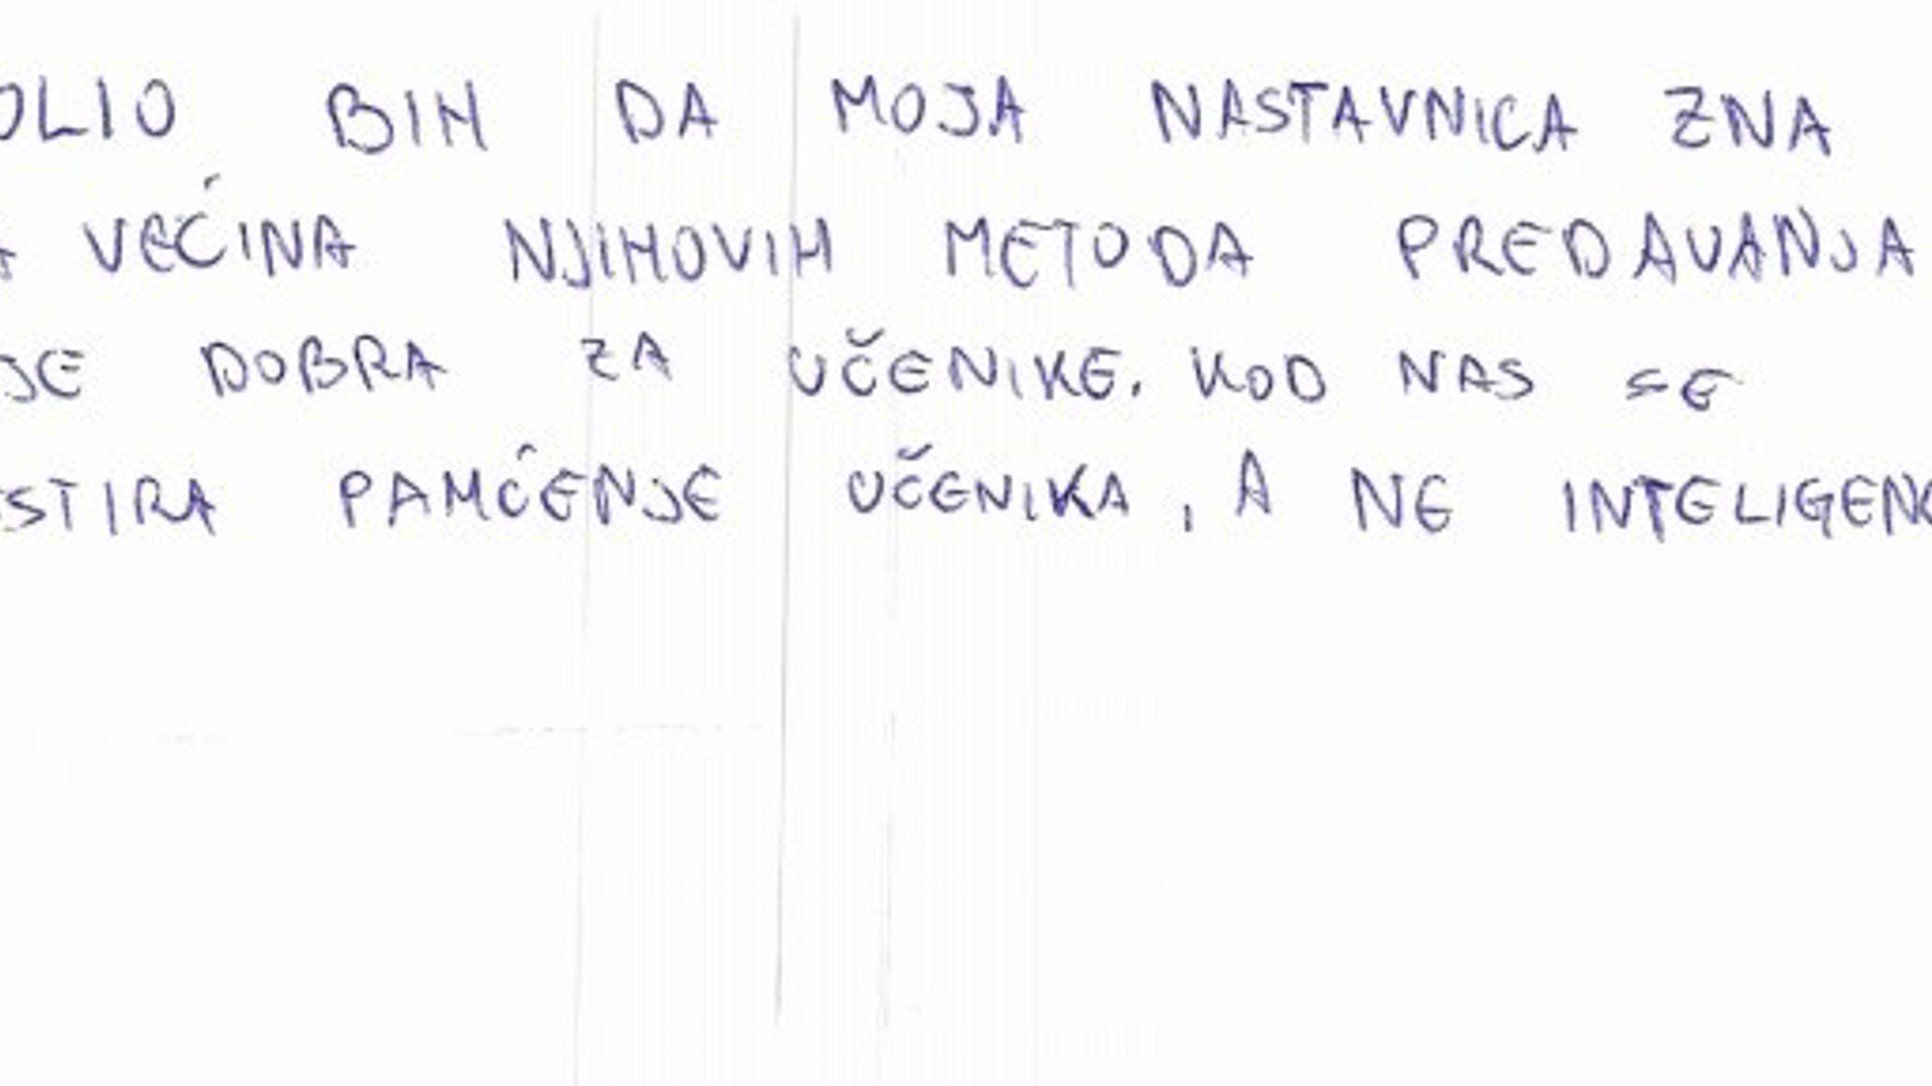 OLIO BIH DA MOJA NASTAVNICA ZNA
A VEĆINA NJIHOVIH METODA PREDAVANJA
JE DOBRA ZA UČENIKE. KOD NAS SE
STIRA PAMĆENJE UČENIKA, A NE INTELIGENC